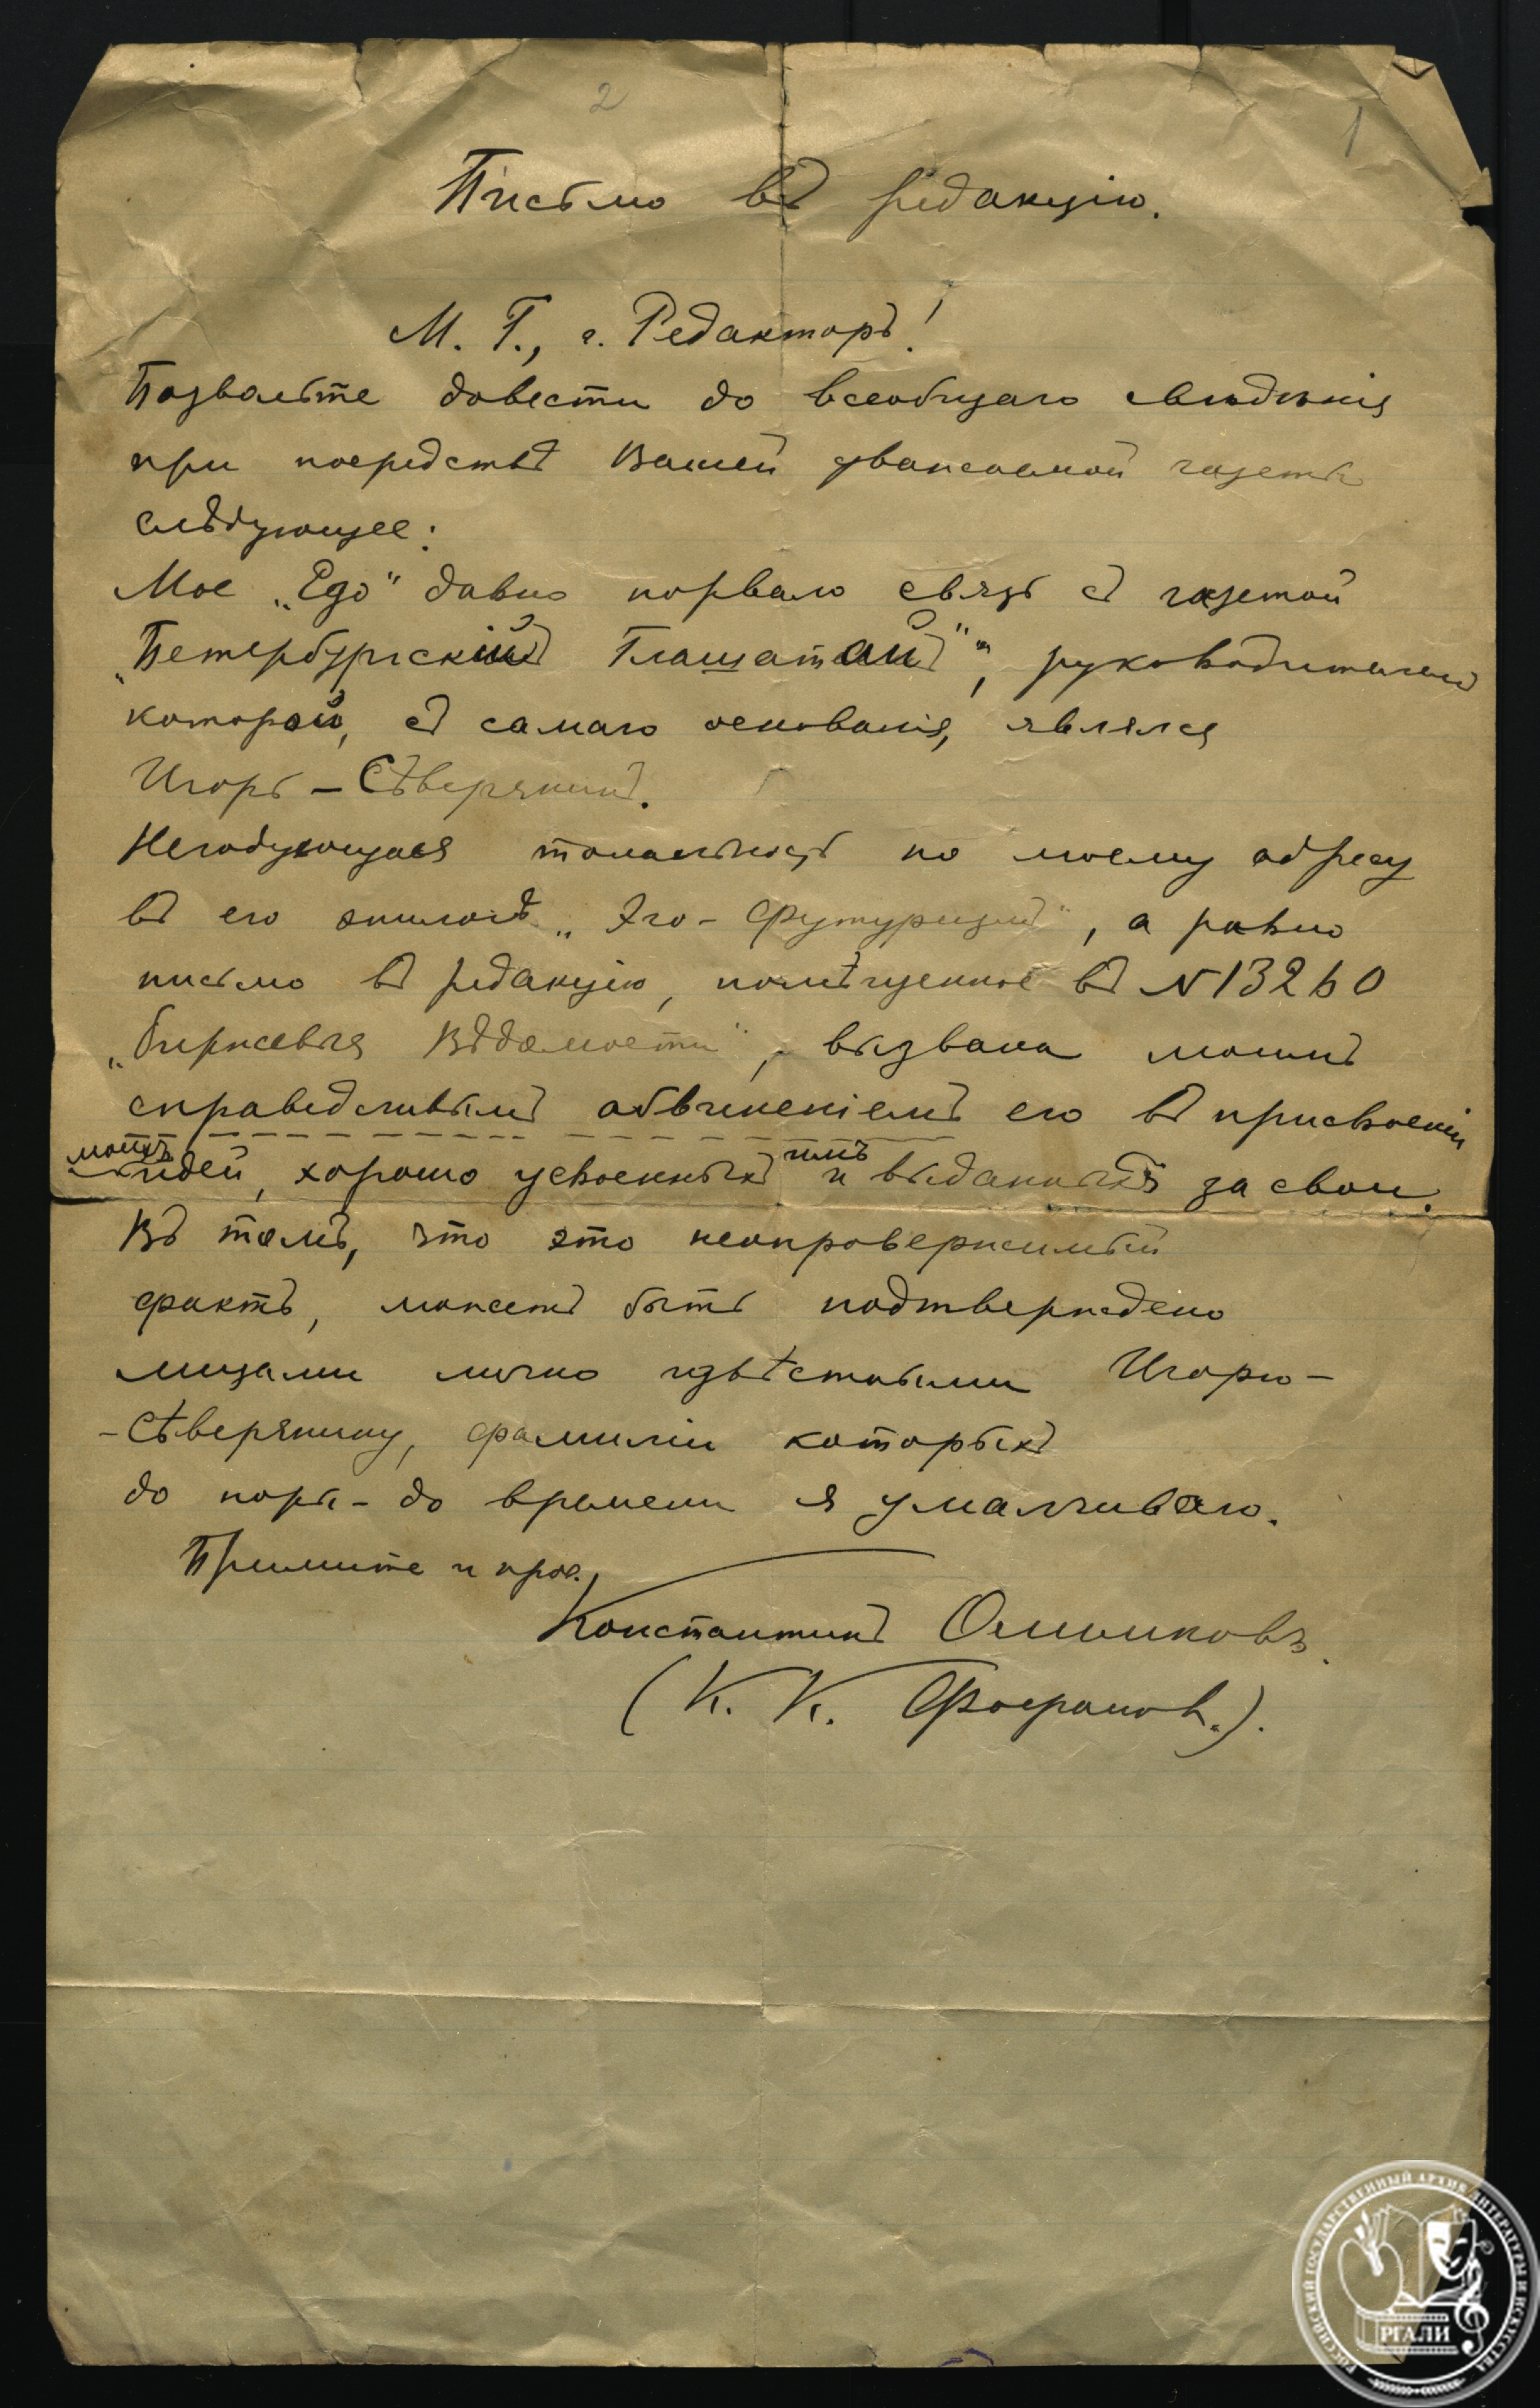 2
1
Письмо въ редакцію.
М. Г., г. Редакторъ!
Позвольте довести до всеобщаго свѣдѣнія
при посредствѣ Вашей уважаемой газеты
слѣдующее:
Мое „Ego“ давно порвало связь съ газетой
„Петербургскій Глашатай“, руководителемъ
которой, съ самаго основанія, являлся
Игорь-Сѣверянинъ.
Негодующая тональность по моему адресу
въ его эпилогѣ „Эго-Футуризмъ“, а равно
письмо въ редакцію, помѣщенное въ N 13260
„Биржевыя Вѣдомости“, вызвана моимъ
справедливымъ обвиненіемъ его въ присвоеніи
моихъ идей, хорошо усвоенныхъ имъ и выданныхъ за свои.
Въ томъ, что это неопровержимый
фактъ, можетъ быть подтверждено
лицами лично извѣстными Игорю-
-Сѣверянину, фамиліи которыхъ
до поры-до времени я умалчиваю.
Примите и проч.
Константинъ Олимповъ.
(К. К. Фофановъ.).
РОССИЙСКИЙ ГОСУДАРСТВЕННЫЙ АРХИВ ЛИТЕРАТУРЫ И ИСКУССТВА
РГАЛИ